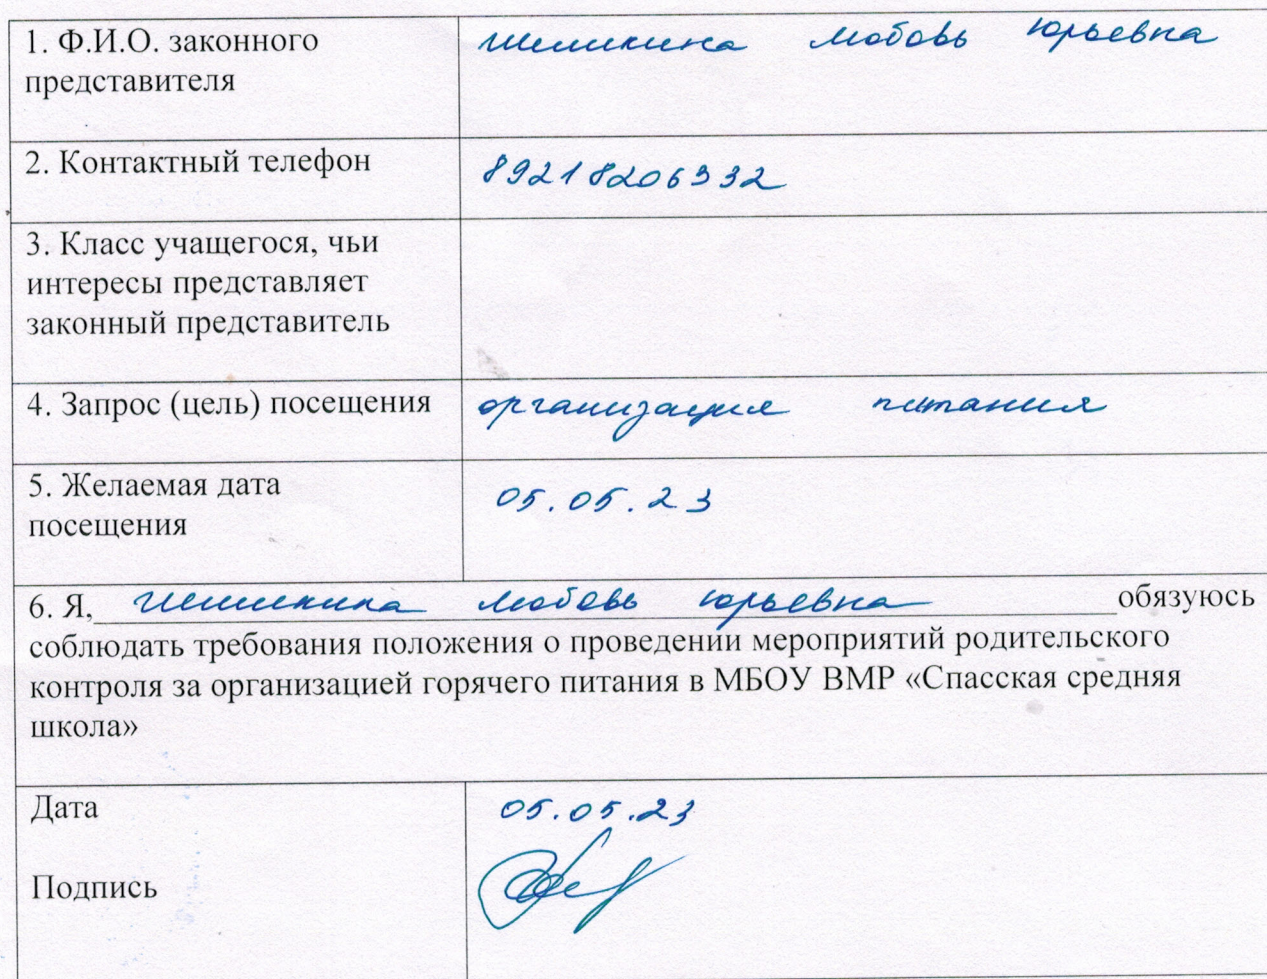 1. Ф.И.О. законного
представителя
Шишкина Любовь Юрьевна
2. Контактный телефон
89218206332
3. Класс учащегося, чьи
интересы представляет
законный представитель
4. Запрос (цель) посещения
организация питания
5. Желаемая дата
посещения
05.05.23
6. Я, Шишкина Любовь Юрьевна обязуюсь
соблюдать требования положения о проведении мероприятий родительского
контроля за организацией горячего питания в МБОУ ВМР «Спасская средняя
школа»
Дата
05.05.23
Подпись